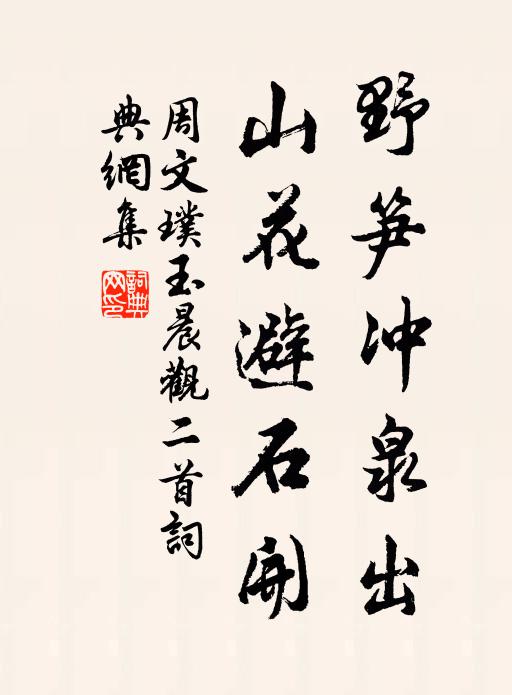 野笋冲泉出
山花避石開
周文璞玉晨觀二首詞
典網集
詞典
网印